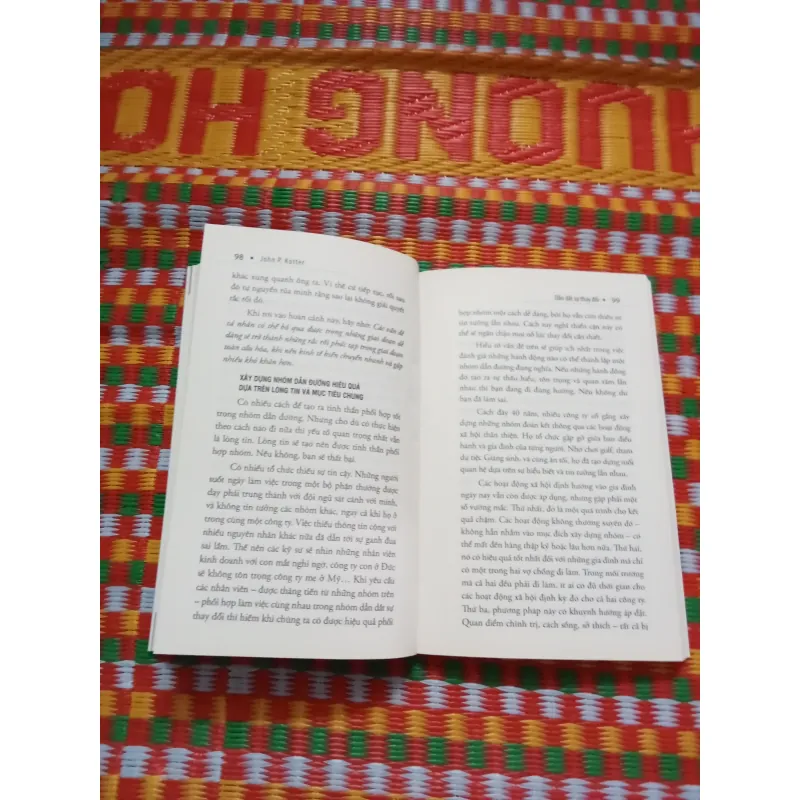 HƯƠNG HO
98 • John P. Kotter
khác xung quanh ông ta. Vì thế cứ tiếp tục, rồi sau
đó tự nguyền rủa mình rằng sao lại không giải quyết
rắc rối đó.
Khi rơi vào hoàn cảnh này, hãy nhớ: Các vấn đề
cá nhân có thể bỏ qua được trong những giai đoạn dễ
dàng sẽ trở thành những rắc rối phức tạp trong giai đoạn
toàn cầu hóa, khi nền kinh tế biến chuyển nhanh và gặp
nhiều khó khăn hơn.
XÂY DỰNG NHÓM DẪN ĐƯỜNG HIỆU QUẢ
DỰA TRÊN LÒNG TIN VÀ MỤC TIÊU CHUNG
Có nhiều cách để tạo ra tinh thần phối hợp tốt
trong nhóm dẫn đường. Nhưng cho dù có thực hiện
theo cách nào đi nữa thì yếu tố quan trọng nhất vẫn
là lòng tin. Lòng tin sẽ tạo nên được tinh thần phối
hợp nhóm. Nếu không, bạn sẽ thất bại.
Có nhiều tổ chức thiếu sự tin cậy. Những người
suốt ngày làm việc trong một bộ phận thường được
dạy phải trung thành với đội ngũ sát cánh với mình,
và không tin tưởng các nhóm khác, ngay cả khi họ ở
trong cùng một công ty. Việc thiếu thông tin cộng với
nhiều nguyên nhân khác nữa đã dẫn tới sự ganh đua
sai lầm. Thế nên các kỹ sư sẽ nhìn những nhân viên
kinh doanh với con mắt nghi ngờ, công ty con ở Đức
sẽ không tôn trọng công ty mẹ ở Mỹ… Khi yêu cầu
các nhân viên – được thăng tiến từ những nhóm trên
– phối hợp làm việc cùng nhau trong nhóm dẫn dắt sự
thay đổi thì hiếm khi chúng ta có được hiệu quả phối
Dẫn dắt sự thay đổi • 99
hợp nhóm một cách dễ dàng, bởi họ vẫn còn thiếu sự
tin tưởng lẫn nhau. Cách suy nghĩ thiển cận này có
thể sẽ ngăn chặn mọi nỗ lực thay đổi cần thiết.
Hiểu rõ vấn đề trên sẽ giúp ích nhất trong việc
đánh giá những hành động nào có thể thành lập một
nhóm dẫn đường đúng nghĩa. Nếu những hành động
đó tạo ra sự thấu hiểu, tôn trọng và quan tâm lẫn
nhau thì bạn đang đi đúng hướng. Nếu không thì
bạn đã làm sai.
Cách đây 40 năm, nhiều công ty cố gắng xây
dựng những nhóm đoàn kết thông qua các hoạt động
xã hội thân thiện. Họ tổ chức gặp gỡ giữa ban điều
hành và gia đình của từng người. Nhờ chơi golf, tham
dự tiệc Giáng sinh, và cùng ăn tối, họ đã tạo dựng mối
quan hệ dựa trên sự hiểu biết và tin tưởng lẫn nhau.
Các hoạt động xã hội định hướng vào gia đình
ngày nay vẫn còn được áp dụng, nhưng gặp phải một
số vướng mắc. Thứ nhất, đó là một quá trình cho kết
quả chậm. Các hoạt động không thường xuyên đó –
không nhắm vào mục đích xây dựng nhóm – có
thể mất đến hàng thập kỷ hoặc lâu hơn nữa. Thứ hai,
nó có hiệu quả tốt nhất đối với những gia đình mà chỉ
có một trong hai vợ chồng đi làm. Trong môi trường
mà cả hai đều phải đi làm, ít ai có đủ thời gian cho
các hoạt động xã hội định kỳ đó cho cả hai công ty.
Thứ ba, phương pháp này có khuynh hướng áp đặt.
Quan điểm chính trị, cách sống, sở thích – tất cả bị